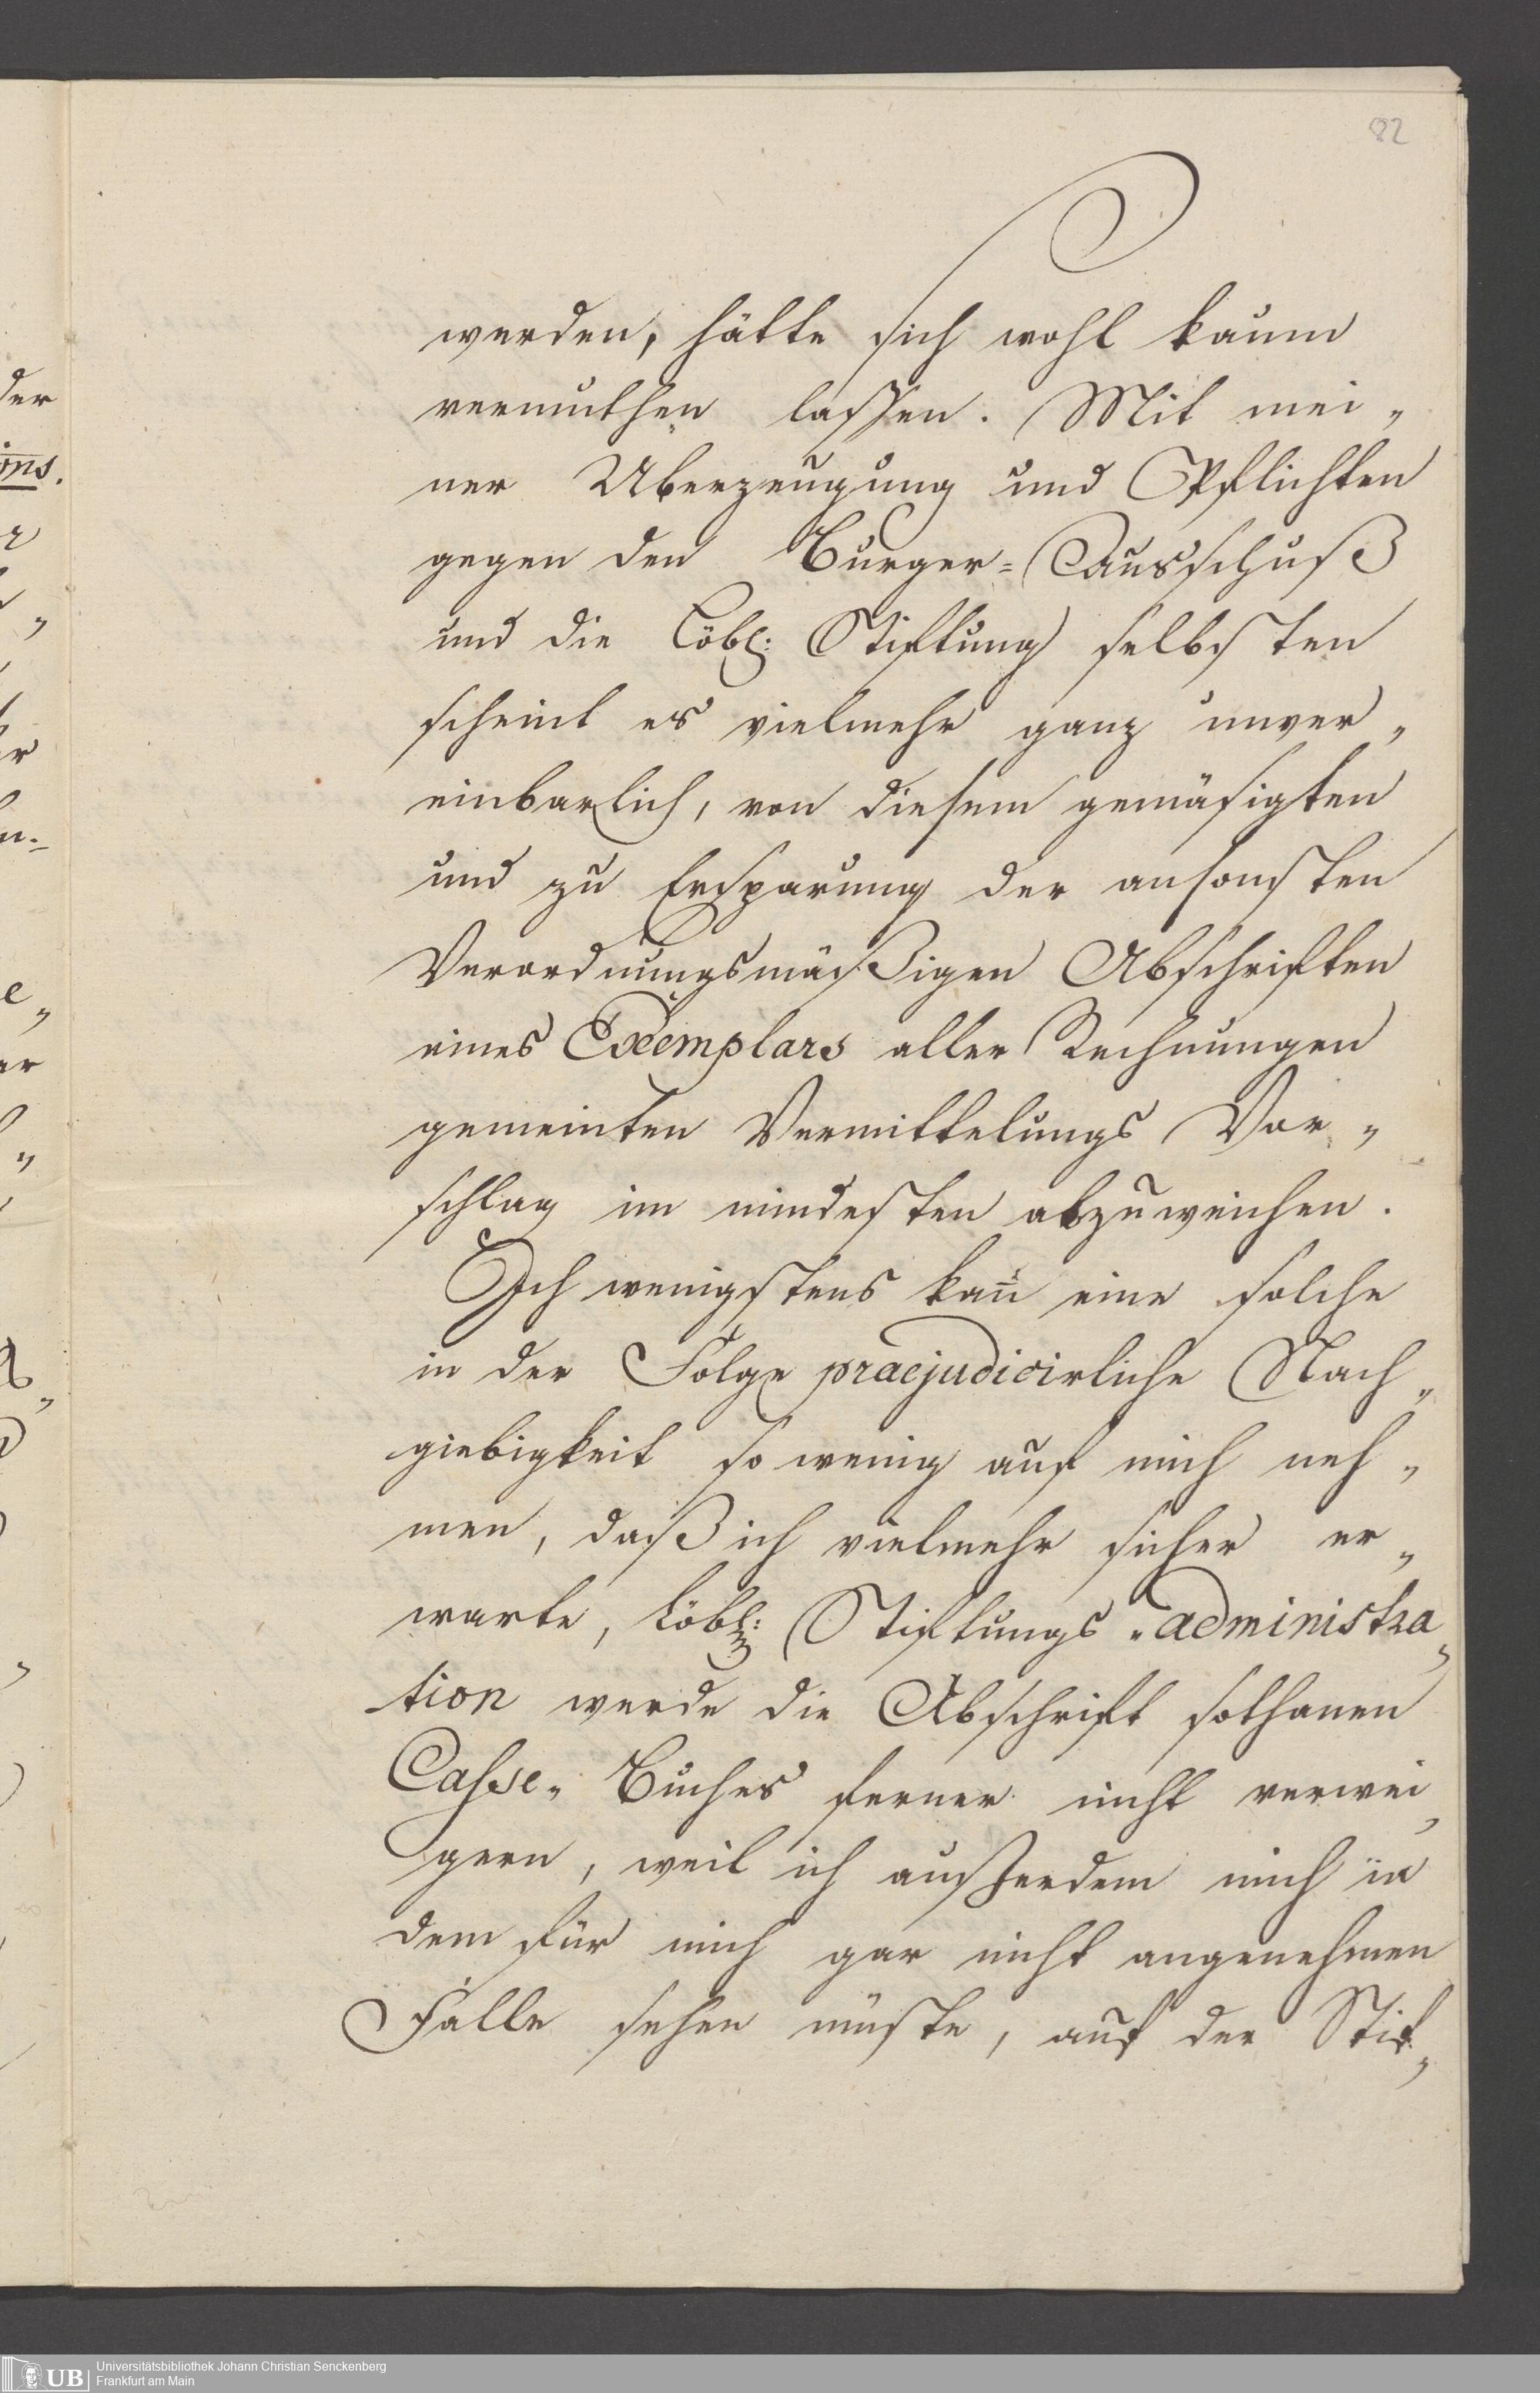 82
werden, hätte sich wohl kaum
vermuthen lassen. Mit mei„
ner Uberzeugung und Pflichten
gegen den Burger=Ausschuß
und die Löbl: Stiftung selbsten
scheint es vielmehr ganz unver„
einbarlich, von diesem gemäsigten
und zu Ersparung der ansonsten
Verordnungsmäßigen Abschriften
eines Exemplars aller Rechnungen
gemeinten Vermittelungs Vor„
schlag im mindesten abzuweichen.
Ich wenigstens kan̄ eine solche
in der Folge praejudicirliche Nach„
giebigkeit so wenig auf mich neh„
men, daß ich vielmehr sicher er„
warte, Löbl: Stiftungs„administra„
tion werde die Abschrift sothanen
Casse„Buches ferner nicht verwei„
gern, weil ich ausserdem mich in
dem für mich gar nicht angenehmen
Falle sehen müste, auf der Stif„
der
UB
Universitätsbibliothek Johann Christian Senckenberg
Frankfurt am Main